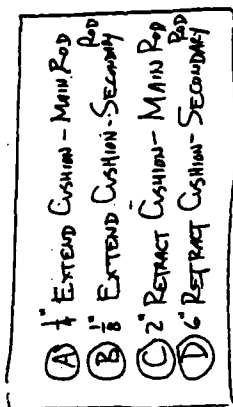 (A) 1/4" EXTEND CUSHION - MAIN ROD
(B) 1/8" EXTEND CUSHION - SECONDARY ROD
(C) 2" RETRACT CUSHION - MAIN ROD
(D) 6" RETRACT CUSHION - SECONDARY ROD